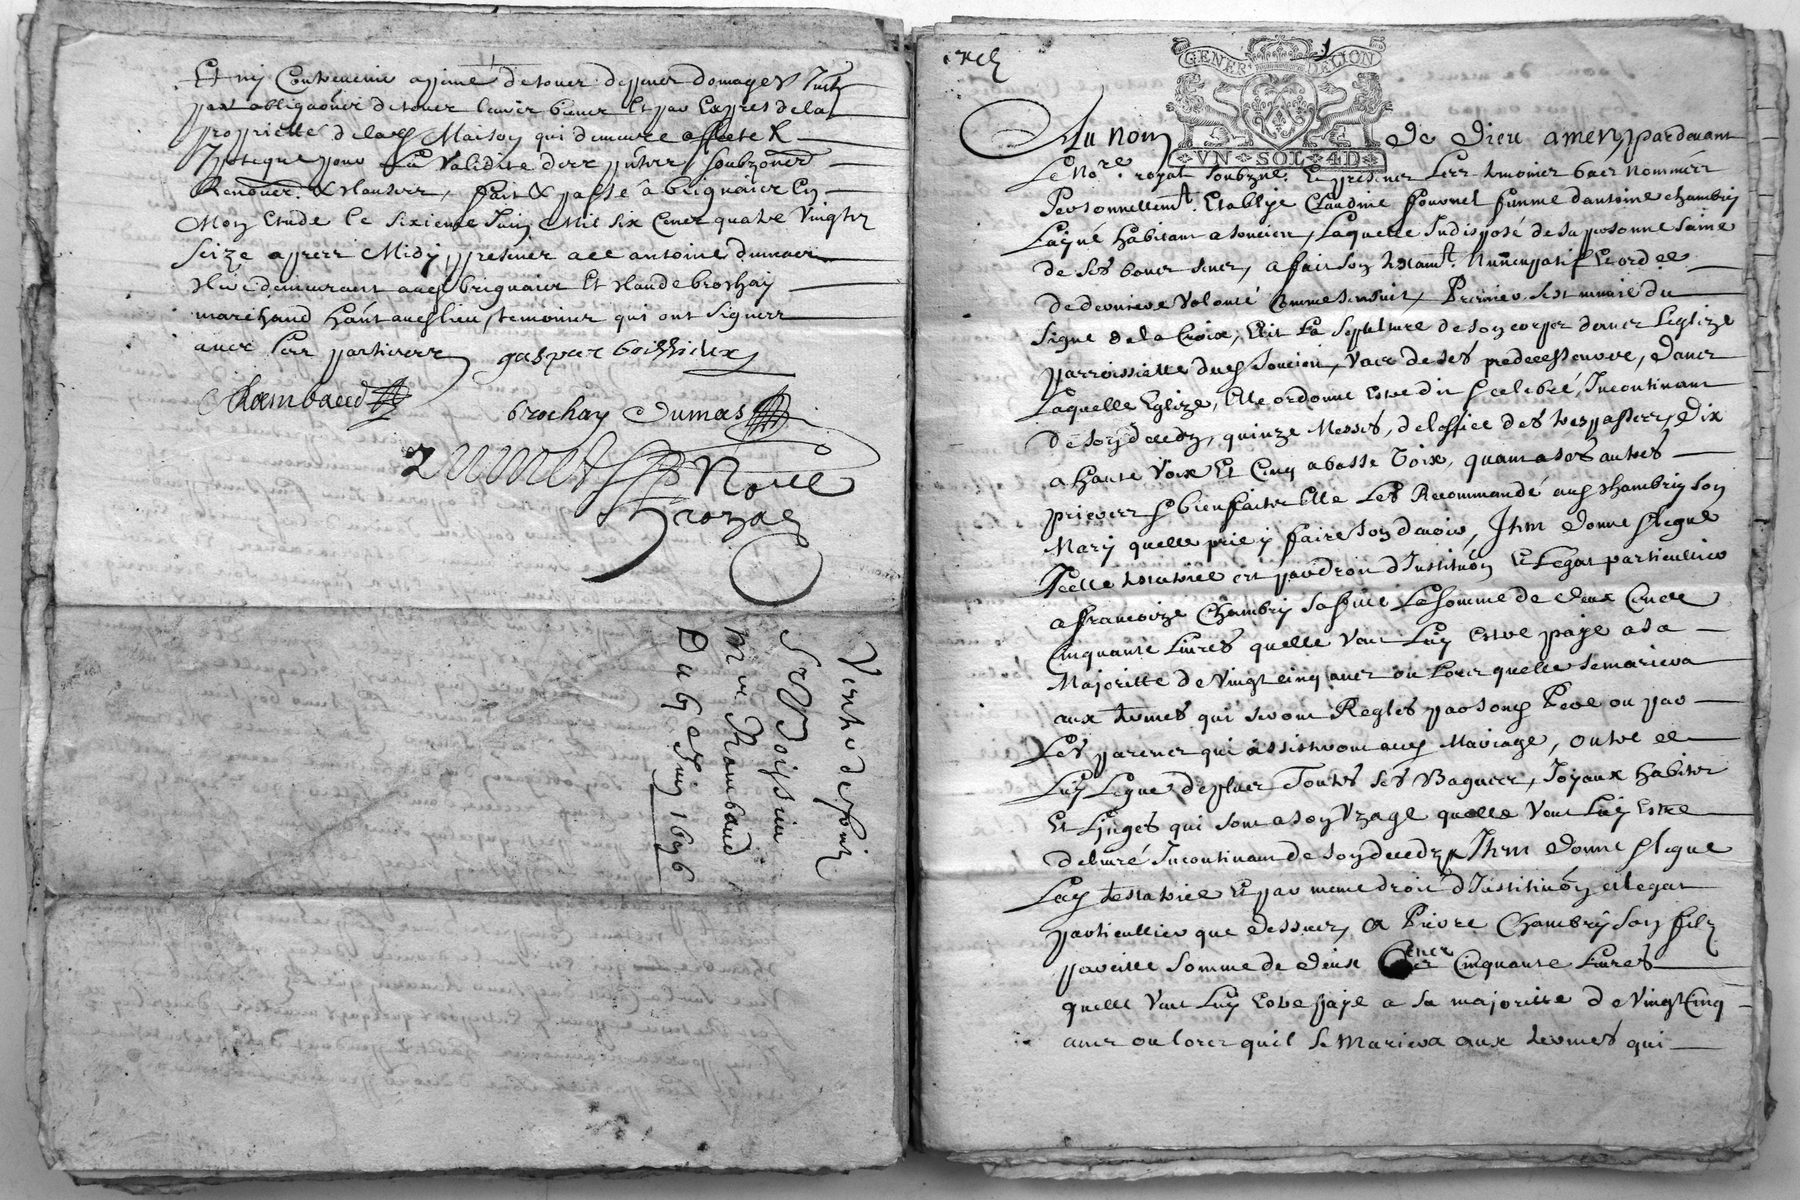 Et ny Contrevenir a peine de tous despens domages Intz
par obligaõner de tous leurs biens Et par Expres de la
proprietté de lad Maison qui demeure affecté &
Ipotequé pour La Validité des pñtes soubzoner
Renoncer & clauses, fait & passé à brignaier En
Mon Etude le sixieme Juin Mil six Cens quatre Vingtz
Seize apres Midy presens a ce antoine dumas
clerc demeurant aud brignaier Et claude brochay
marchand hãnt aud lieu, temoins qui ont signez
avec les parties gaspar boissieux
Rambaud
brochay Dumas
Nore
Royal
Vente de fond
Sr Boissieu
Mre Rambaud
Du 6e Juin 1696
GENER DE LION
VN SOL 4D
Au nom de Dieu amen, pardevant
Le Nore royal soubzné Et presens Les temoins bas Nommés
Personnellemt Etablye Claudine fournel femme dantoine chambry
Layné habitant a soucieu, Laquelle Indisposé de sa personne saine
de ses bons sens, a fait son testamt Nuncupatif Et ordre
de derniere Volonté Comme sensuit, Premier sest munie du
signe de la Croix, Elit La sepulture de son corps dans Leglize
parroissialle dud soucieu, Vase de ses predecesseurs, dans
Laquelle Eglize, Elle ordonne Estre dit & celebré, Incontinant
de son deceds, quinze Messes, de loffice des trespasses, Dix
a haute Voix Et Cinq a basse Voix, quant a ses autres
prieres & bienfaits Elle Les Recommande aud chambry son
Mary quelle prie y faire son devoir, Item donne & legue
Icelle testatrice et par droit d'Institũon Et Legat particullier
a francoize Chambry sa fille La somme de deux Cens
Cinquante Livres quelle Veut Luy Estre paye a sa
Majoritté de Vingt cinq ans ou Lors quelle se mariera
aux termes qui seront Regles par sond Pere ou par
Les parens qui assisteront aud Mariage, outre ce
Luy Legue de plus Toutes ses Bagues, Joyaux habits
Et Linges qui sont a son Vzage quelle Veut Luy Estre
delivré Incontinant de son deceds, Item donne & legue
Lad testatrice Et par meme droit d'Institũon et legat
particullier que dessus, a Pierre Chambry son filz
pareille somme de deux Cens Cinquante Livres
quelle Veut Luy Estre paye a sa majoritté de Vingt Cinq
ans ou lors quil se Mariera aux termes qui